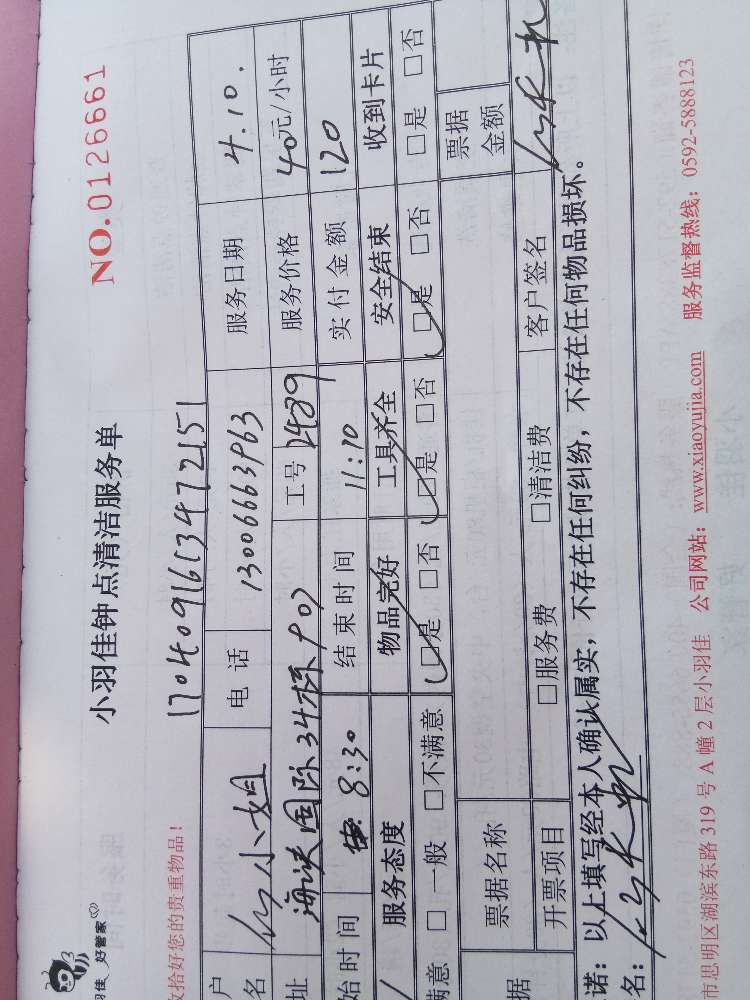 羽佳 好管家
小羽佳钟点清洁服务单
NO.0126661
收拾好您的贵重物品!
1704091653472151
户名 小姐 电话 13006663963 服务日期 4.10.
址 海峡国际34栋903 工号 2489 服务价格 40元/小时
始时间 8:30 结束时间 11:10 实付金额 120
服务态度 物品完好 工具齐全 安全结束 收到卡片
满意 □一般 □不满意 □是 □否 □是 □否 □是 □否 □是 □否
据 票据名称 票据金额
开票项目 □服务费 □清洁费 客户签名
诺：以上填写经本人确认属实，不存在任何纠纷，不存在任何物品损坏。
名：
市思明区湖滨东路 319 号 A 幢 2 层小羽佳 公司网站：www.xiaoyujia.com 服务监督热线：0592-5888123